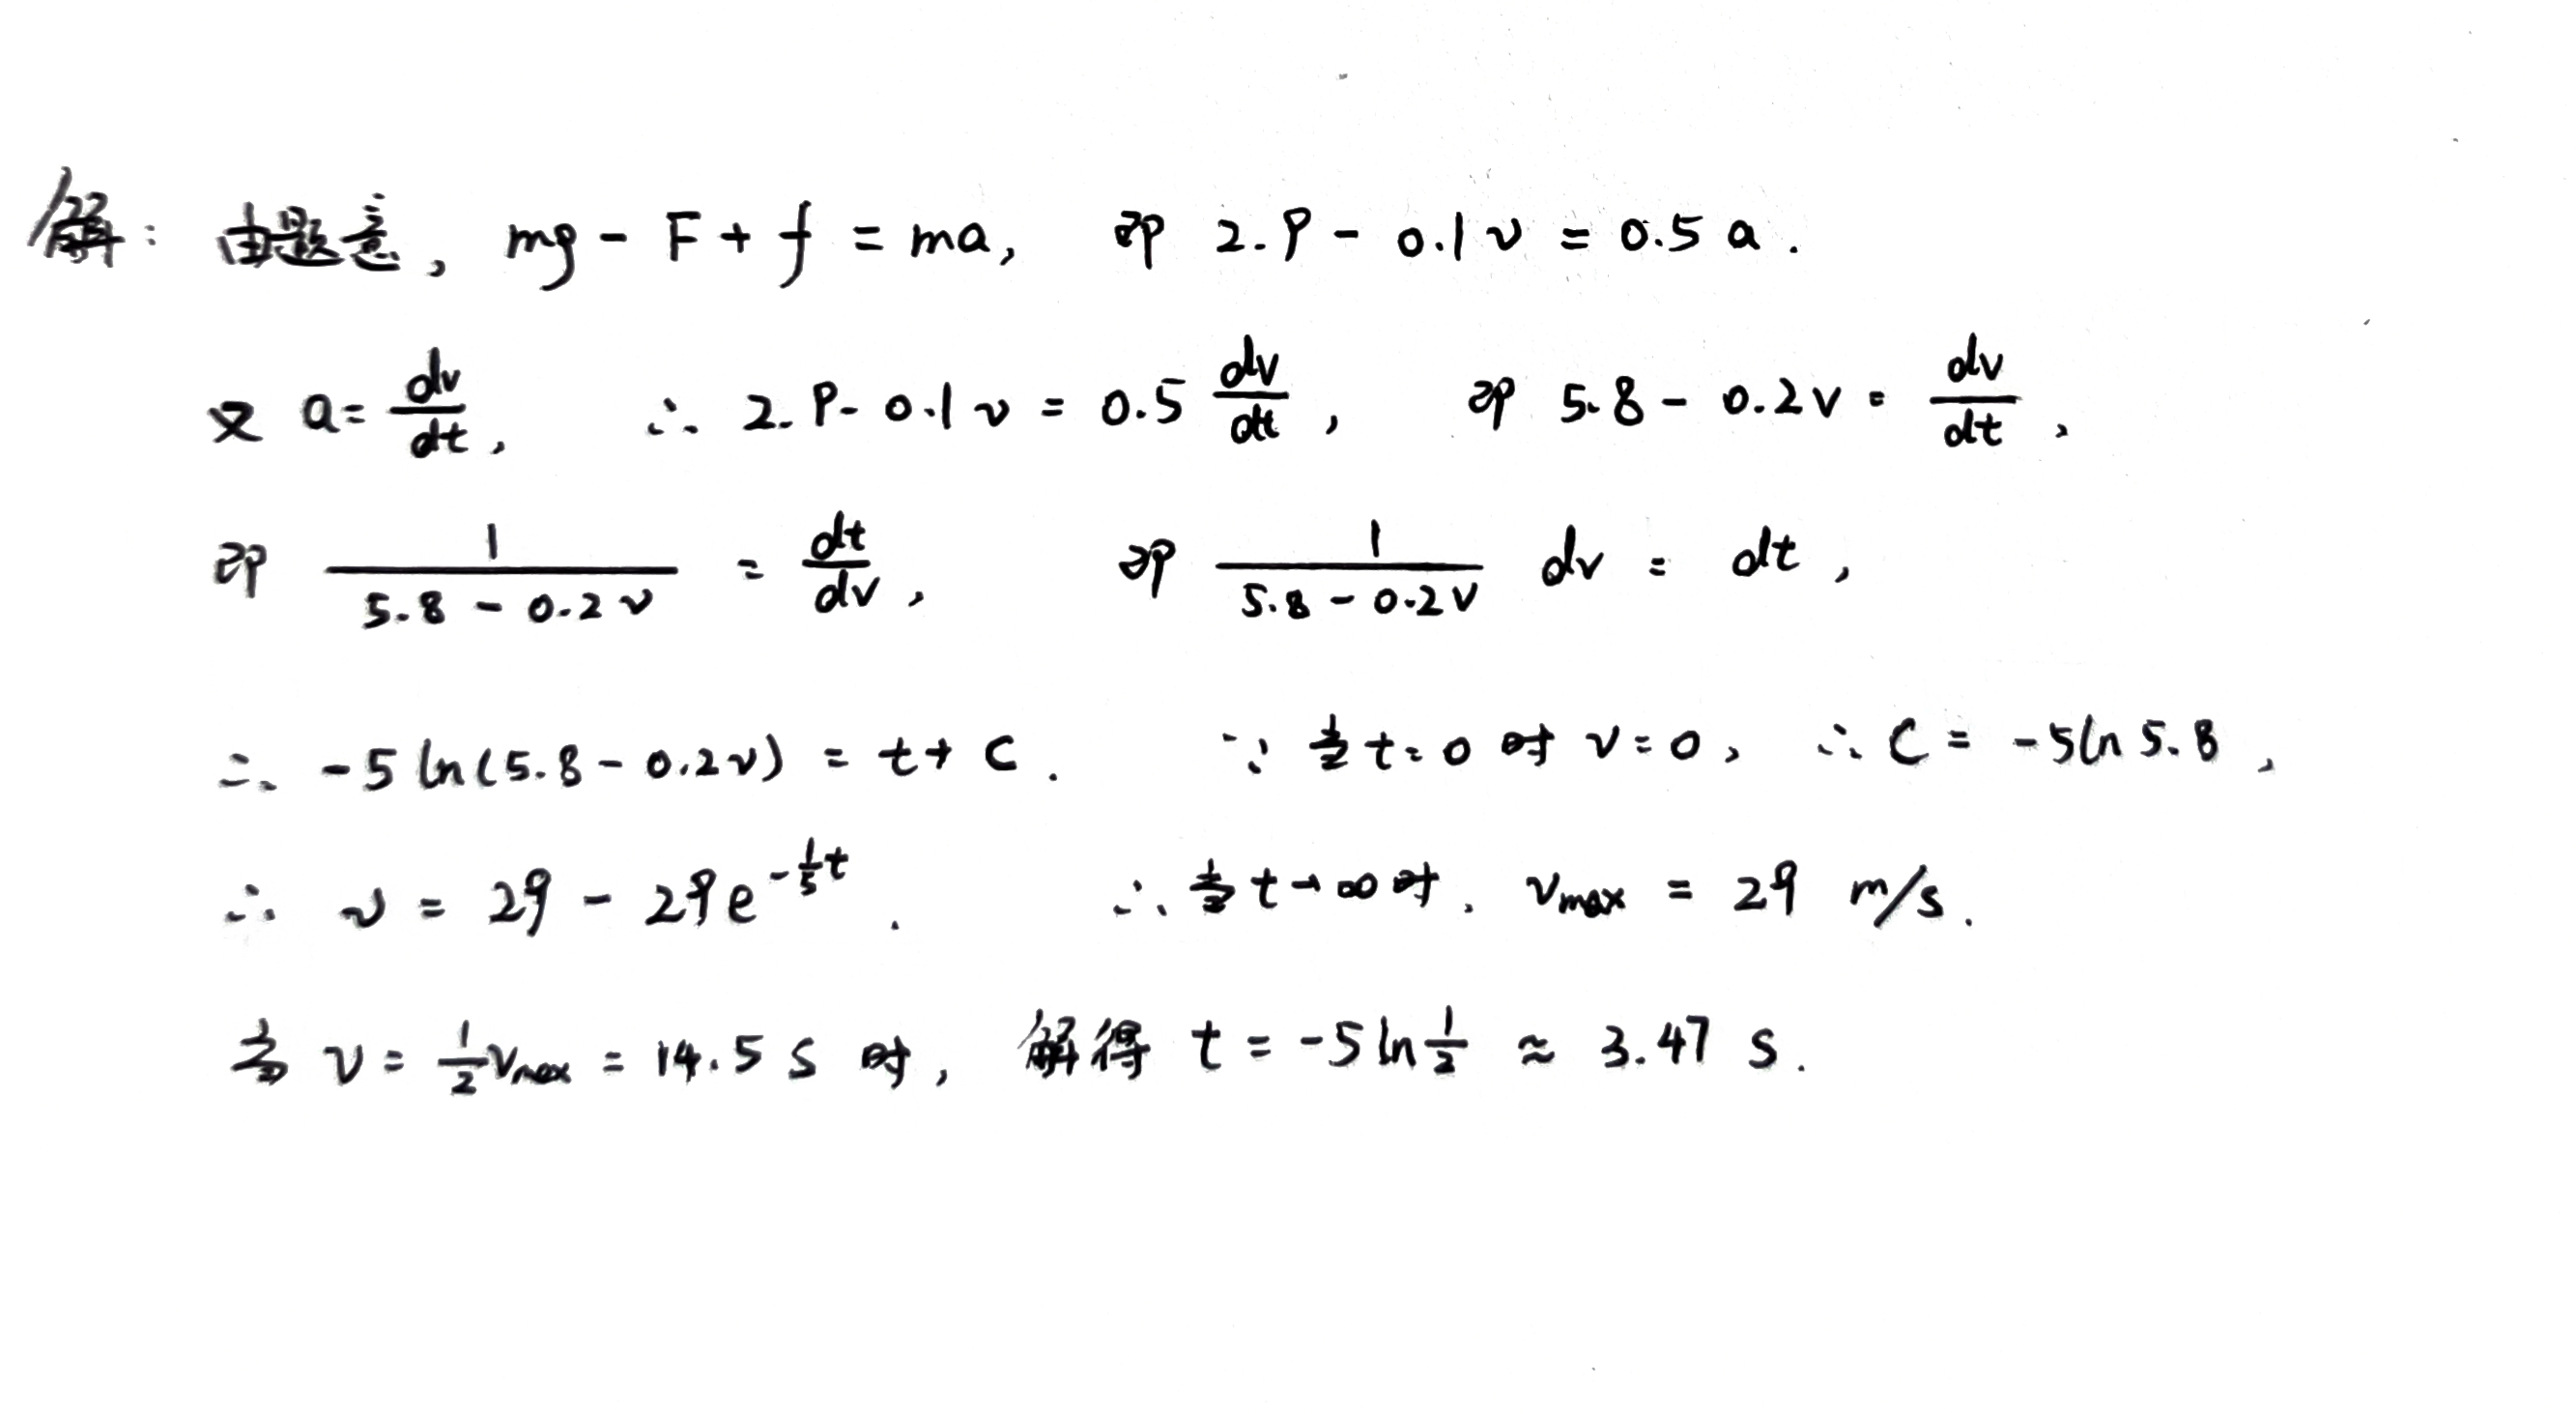 解：由题意，mg - F + f = ma， 即 2.9 - 0.1v = 0.5a .
又 a = dv/dt， ∴ 2.9 - 0.1v = 0.5 dv/dt， 即 5.8 - 0.2v = dv/dt，
即 1/(5.8 - 0.2v) = dt/dv， 即 1/(5.8 - 0.2v) dv = dt，
∴ -5 ln(5.8 - 0.2v) = t + C . ∵ 当 t = 0 时 v = 0， ∴ C = -5 ln 5.8，
∴ v = 29 - 29e^(-1/5 t) . ∴ 当 t → ∞ 时， v_max = 29 m/s .
当 v = 1/2 v_max = 14.5 s 时， 解得 t = -5 ln 1/2 ≈ 3.47 s .